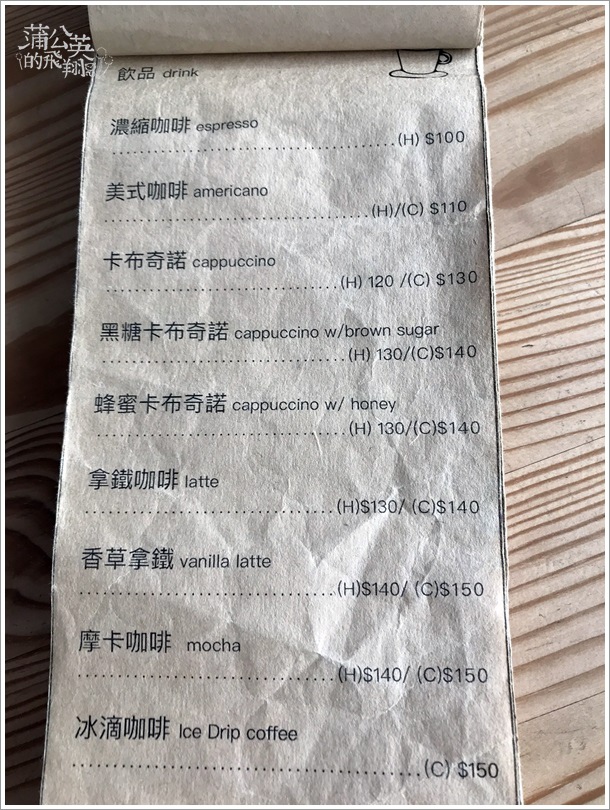 蒲公英
的飛翔
飲品 drink
濃縮咖啡 espresso
(H) $100
美式咖啡 americano
(H)/(C) $110
卡布奇諾 cappuccino
(H) 120 /(C) $130
黑糖卡布奇諾 cappuccino w/brown sugar
(H) 130/(C)$140
蜂蜜卡布奇諾 cappuccino w/ honey
(H) 130/(C)$140
拿鐵咖啡 latte
(H)$130/ (C)$140
香草拿鐵 vanilla latte
(H)$140/ (C)$150
摩卡咖啡 mocha
(H)$140/ (C)$150
冰滴咖啡 Ice Drip coffee
(C) $150